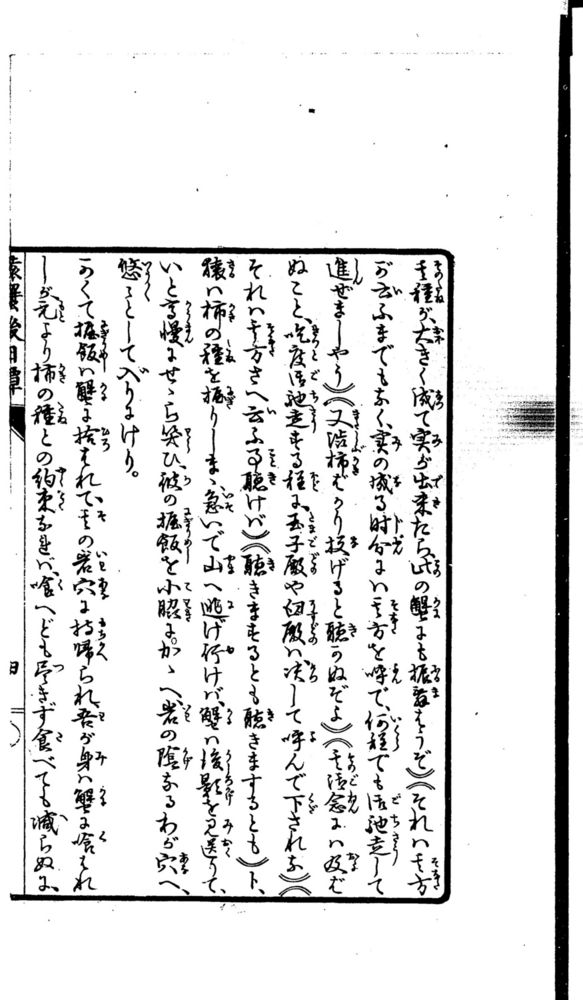 其種が、大きく成て実が出来たら、此の蟹にも振舞はうぞ）（それハ其方
が云ふまでもなく、実の成る時分にハ其方を呼で、何程でも御馳走して
進ぜましやう）（又渋柿ばかり投げると聴かぬぞよ）（其御念にハ及ば
ぬこと、吃度御馳走する程に、玉子殿や臼殿ハ決して呼んで下されな）（
それハ其方さへ云ふる聴けバ）（聴きまするとも聴きまするとも）ト、
猿ハ柿の種を握りしまゝ、急いで山へ逃げ行けバ、蟹ハ後影を見送りて、
いと高慢にせゝら笑ひ、彼の握飯を小脇にかゝへ、岩の陰なるわが穴へ、
悠々として入りにけり。
かくて握飯ハ蟹に拾はれて、其の岩穴に持帰られ、吾が身ハ蟹に喰はれ
しが元より柿の種との約束なれバ、喰へども尽きず食べても減らぬに、
猿蟹後日譚
四